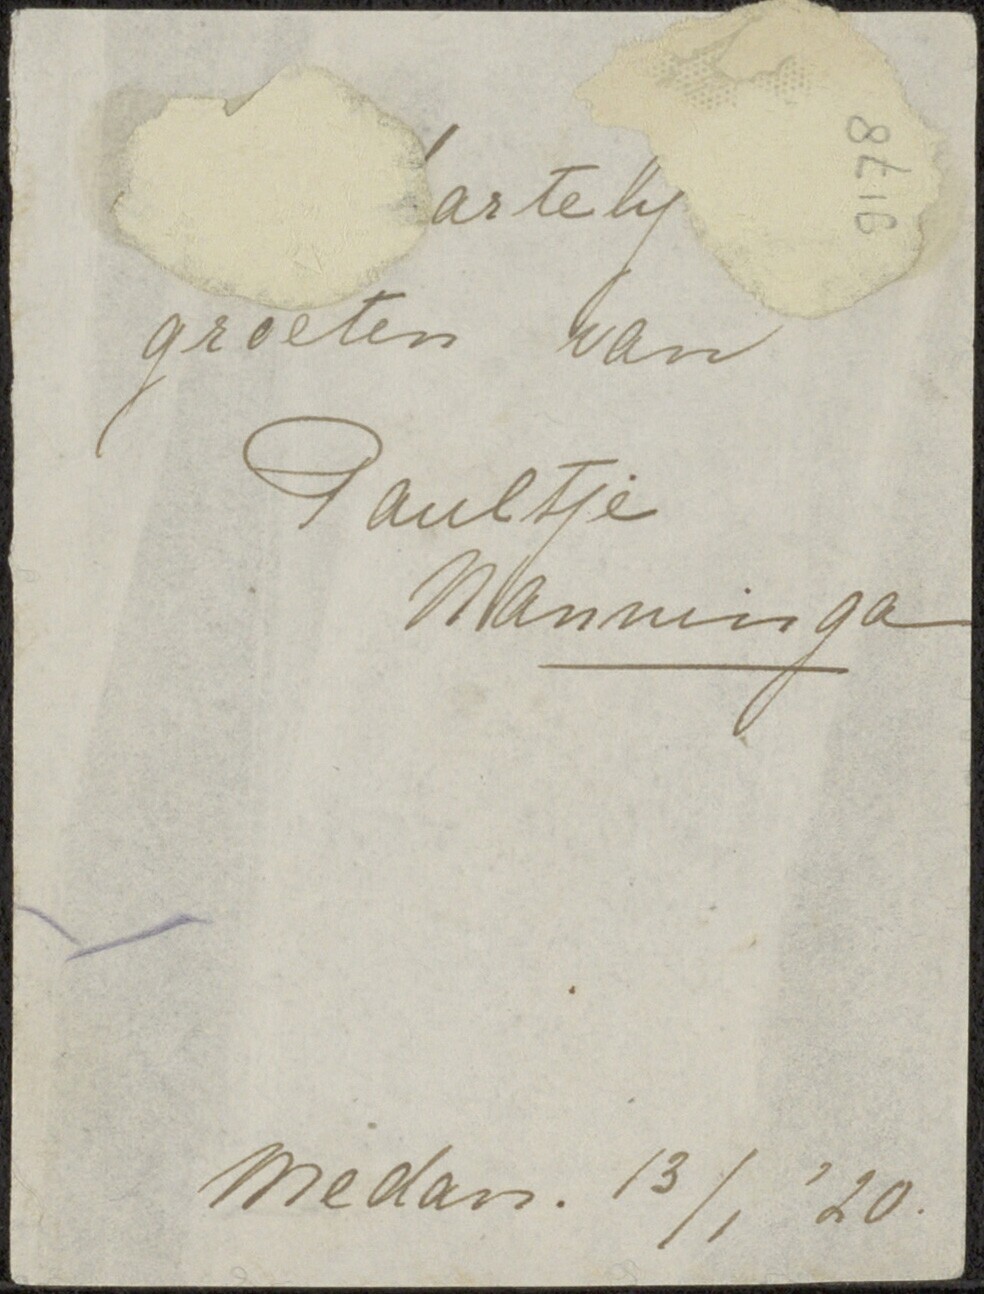 artely
groeten van
Paultje
Nanninga
Medan. 13/1 '20.
9178